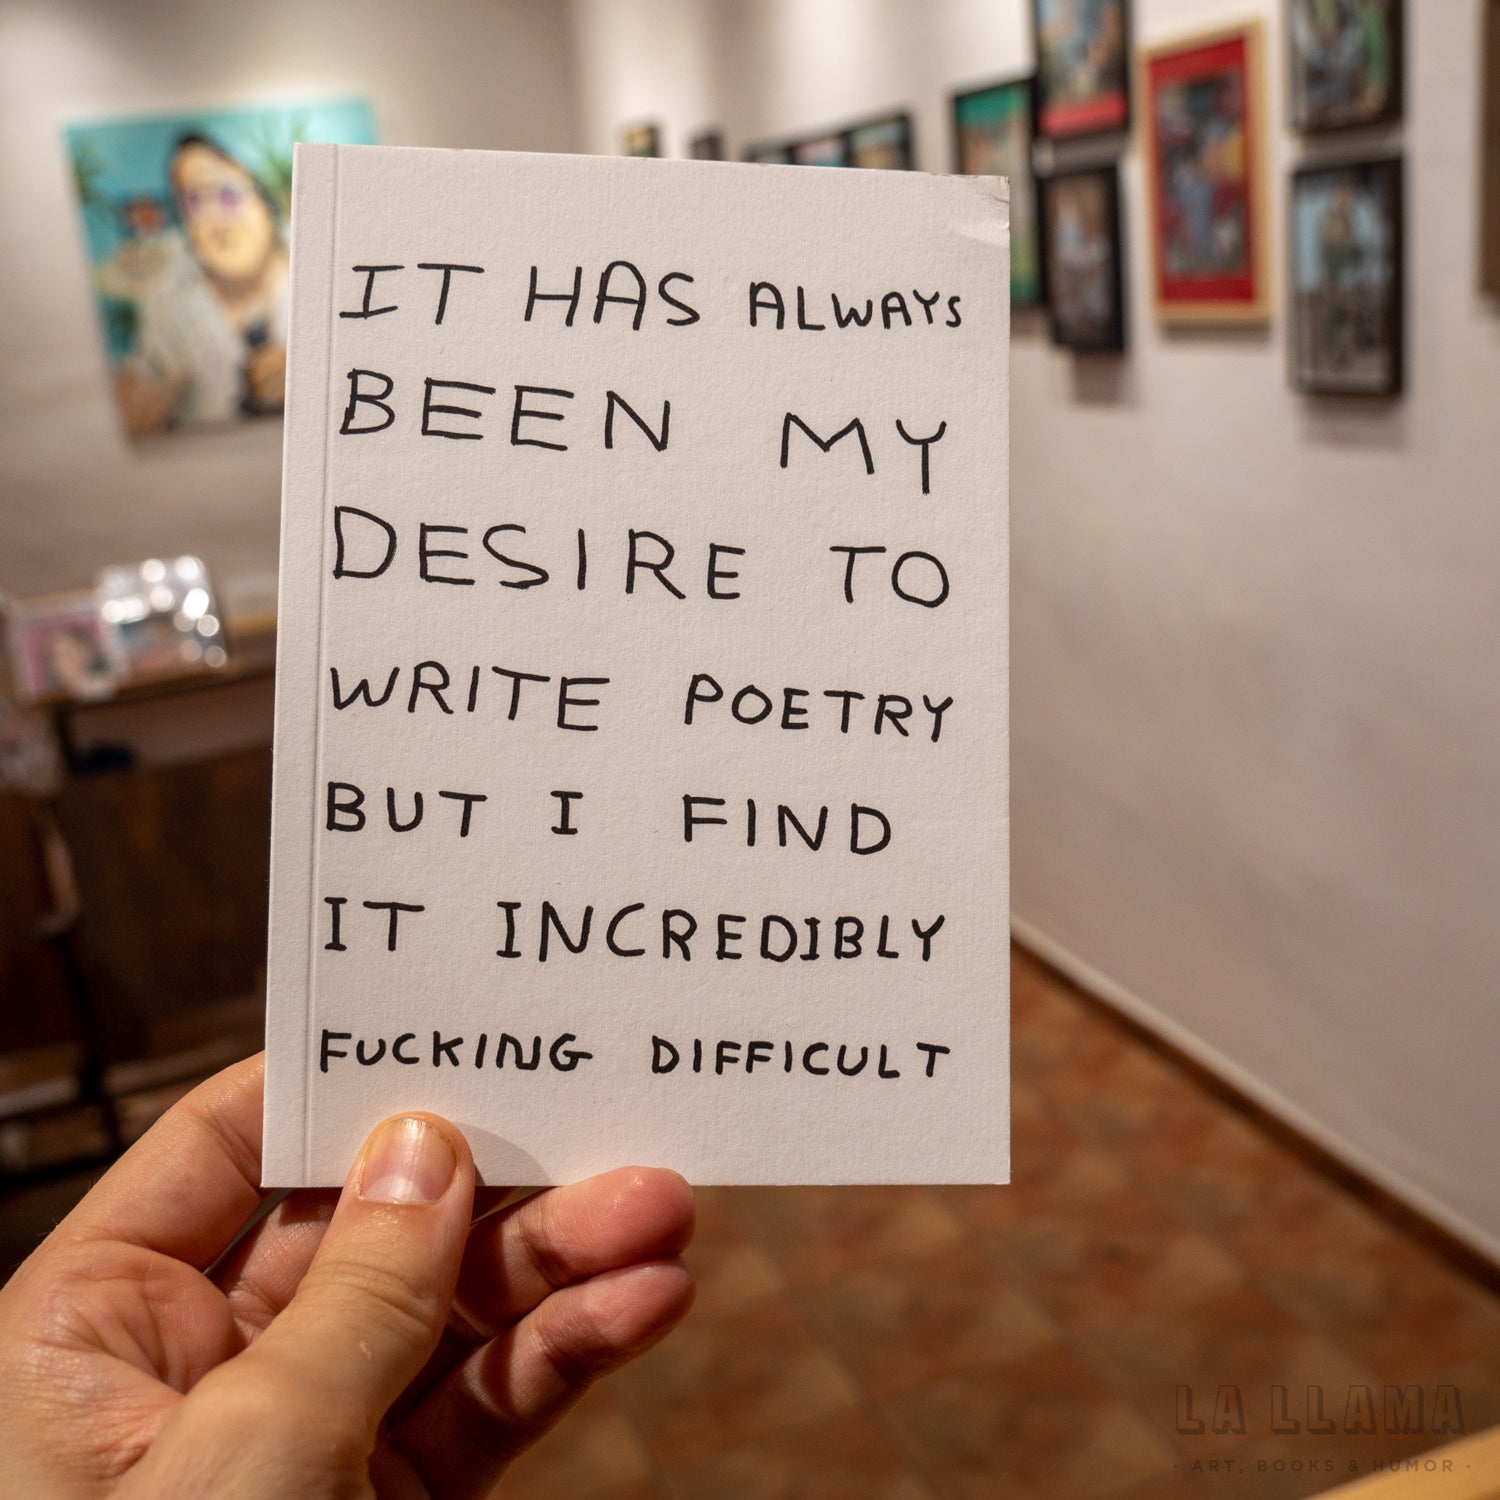 IT HAS ALWAYS
BEEN MY
DESIRE TO
WRITE POETRY
BUT I FIND
IT INCREDIBLY
FUCKING DIFFICULT
LA LLAMA
· ART, BOOKS & HUMOR ·